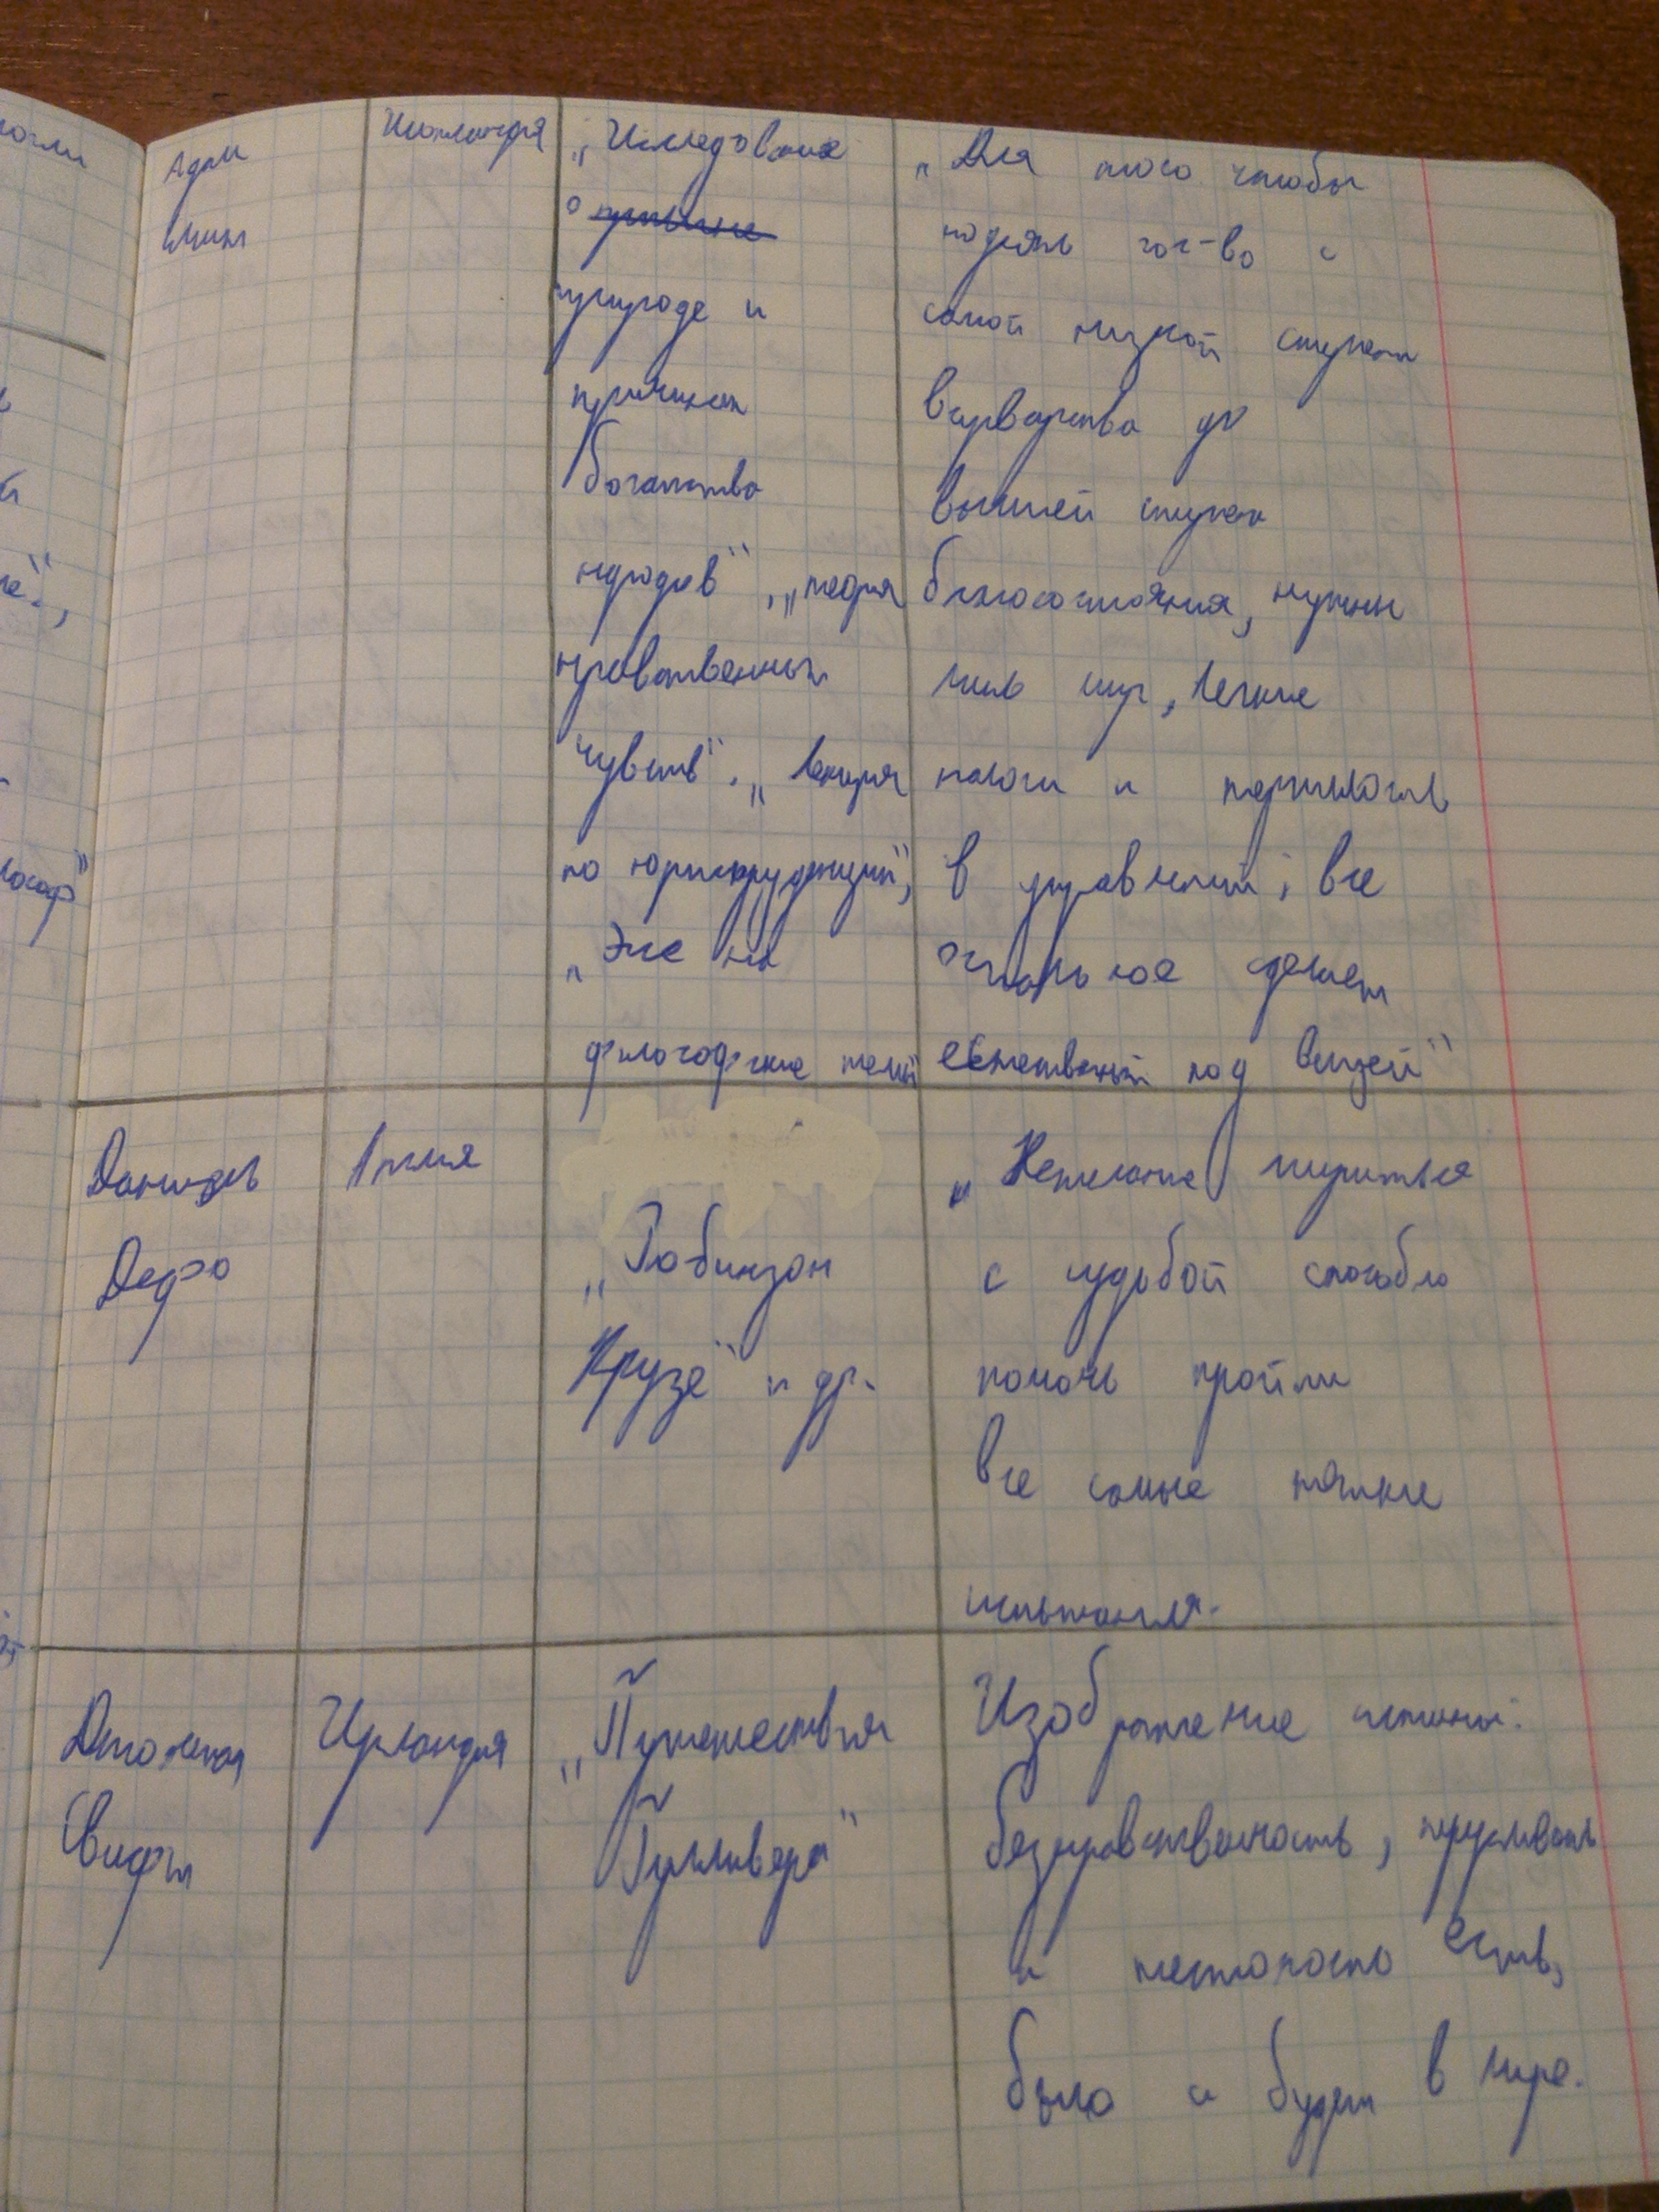 Адам
Смит
Шотландия
„Исследование
о причине
природе и
причинах
богатства
народов", „теория
нравственных
чувств", „Лекция
по юриспруденции",
„Эссе на
философские темы"
„Для того чтобы
поднять гос-во с
самой низкой ступени
варварства до
высшей ступени
благосостояния, нужны
лишь мир, легкие
налоги и терпимость
в управлении; все
остальное сделает
естественный ход вещей"
Даниэль
Дефо
Англия
„Робинзон
Крузо" и др.
„Нежелание мириться
с судьбой способно
помочь пройти
все самые тяжкие
испытания.
Джонатан
Свифт
Ирландия
„Путешествия
Гулливера"
Изображение истины.
безнравственность,
и жестокость есть,
было и будет в мире.